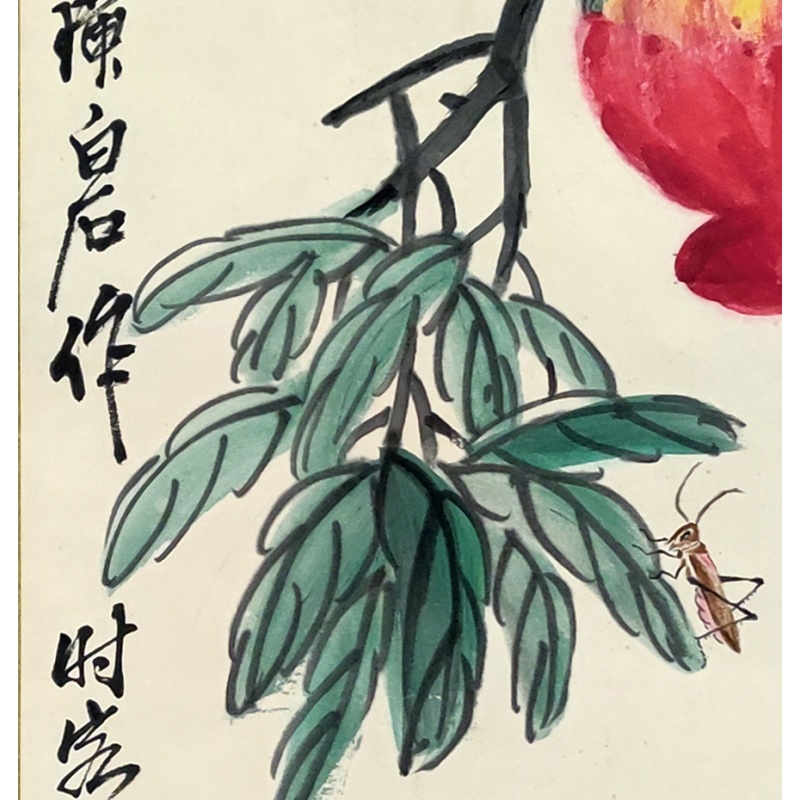 璜白石作时客